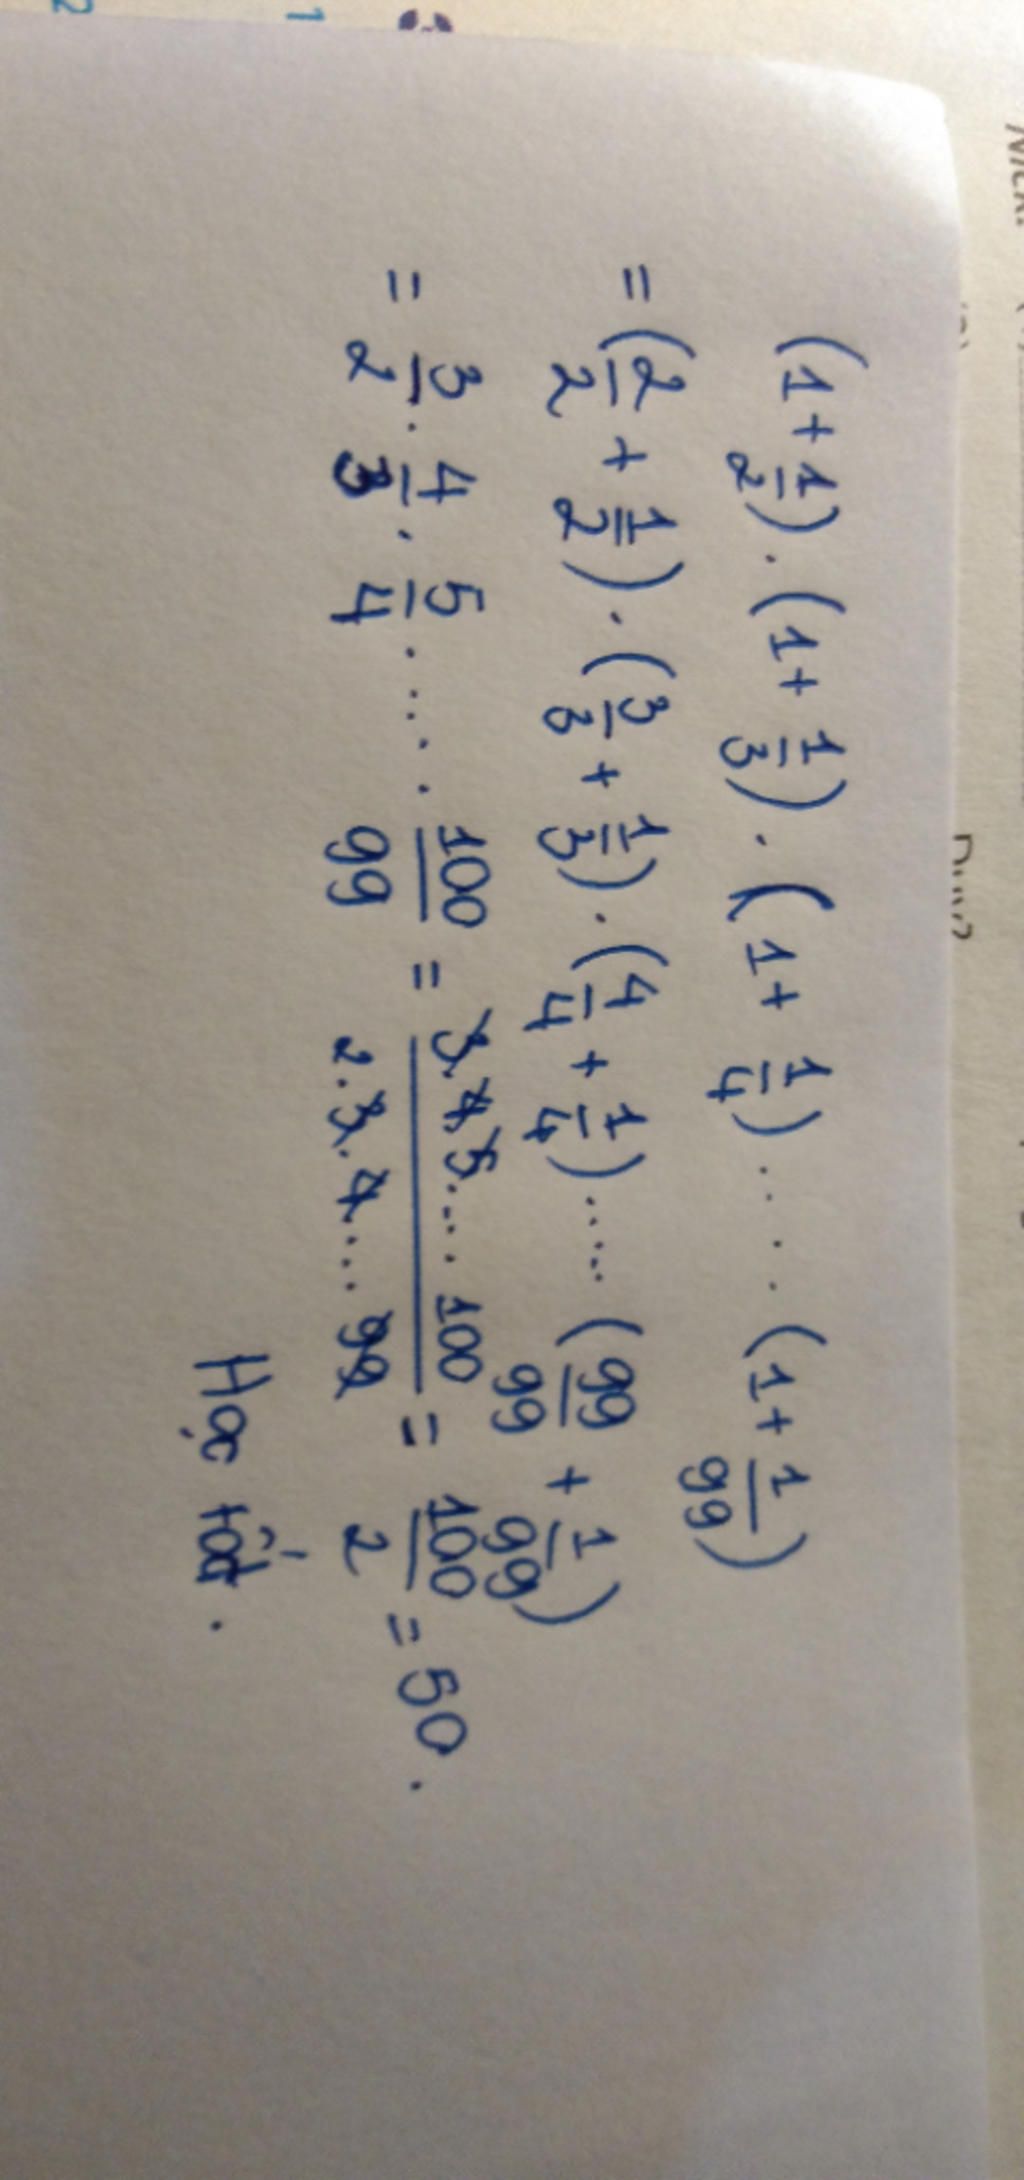 (1+1/2).(1+1/3).(1+1/4)....(1+1/99)
=(2/2+1/2).(3/3+1/3).(4/4+1/4).....(99/99+1/99)
=3/2.4/3.5/4.....100/99=3.4.5....100/2.3.4....99=100/2=50.
Học tốt.
1
2